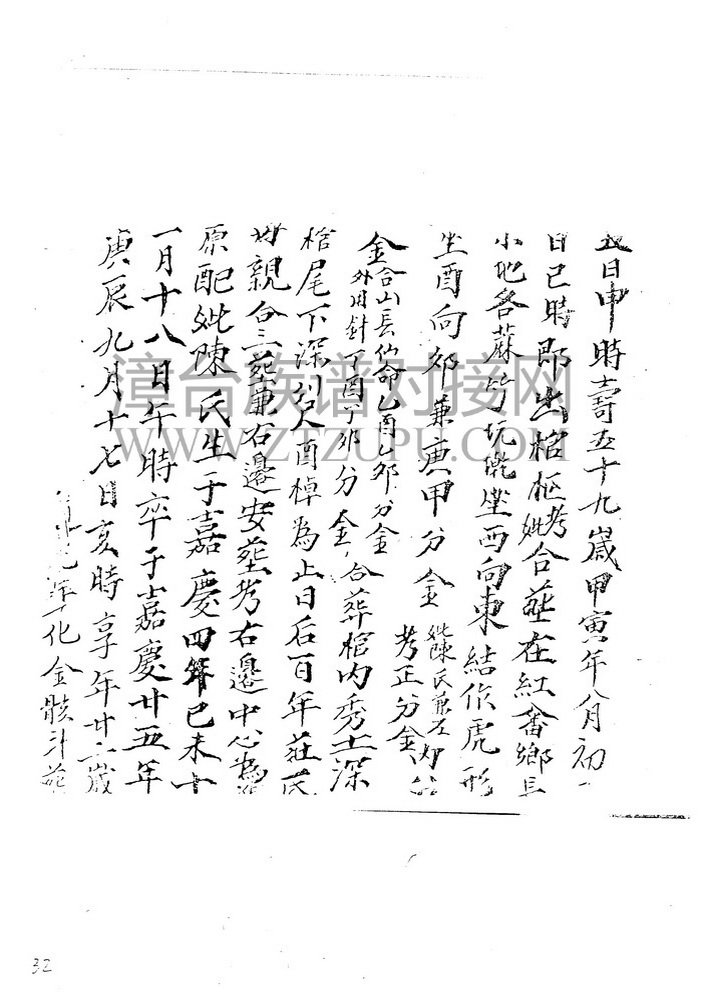 日申時壽五十九歲甲寅年八月初一
日巳時即出棺柩考妣合葬在紅畬鄉
小地名蔴竹坑墘坐西向東結作虎形
坐酉向卯兼庚甲分金妣陳氏兼左內分
金合山長仙命乙酉乙卯分金考正分金
外用針丁酉丁卯分金合葬棺內秀土深
棺尾下深酉棹為止日后百年莊氏
母親合三塟兼右邊安塟考右邊中心為
原配妣陳氏生于嘉慶四年己未十
一月十八日午時卒于嘉慶廿五年
庚辰九月十七日亥時享年廿二歲
化金骸斗
澶台族谱对接网
WWW.ZTZUPU.COM
32